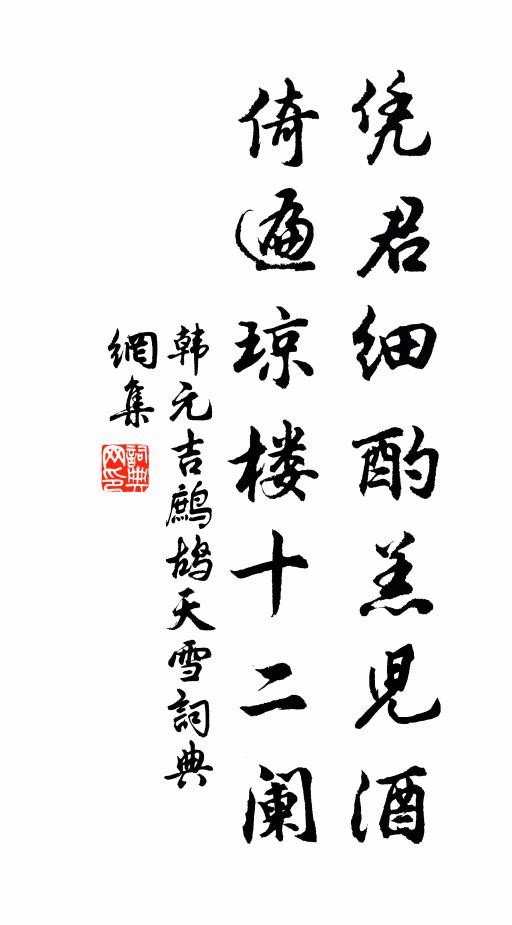 凭君细酌羔児酒
倚遍琼楼十二阑
韩元吉鹧鸪天雪詞典
網集
詞典网印